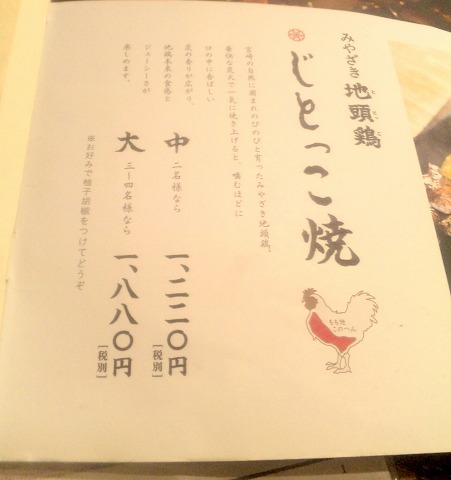 みやざき地頭鶏
じとっこ
じとっこ焼
宮崎の自然に囲まれのびのびと育ったみやざき地頭鶏。
豪快な炭火で一気に焼き上げると、噛むほどに
口の中に香ばしい
炭の香りが広がり、
地鶏本来の食感と
ジューシーさが
楽しめます。
中 二名様なら 一、二二〇円[税別]
大 三〜四名様なら 一、八八〇円[税別]
※お好みで柚子胡椒をつけてどうぞ
もも焼
このへん